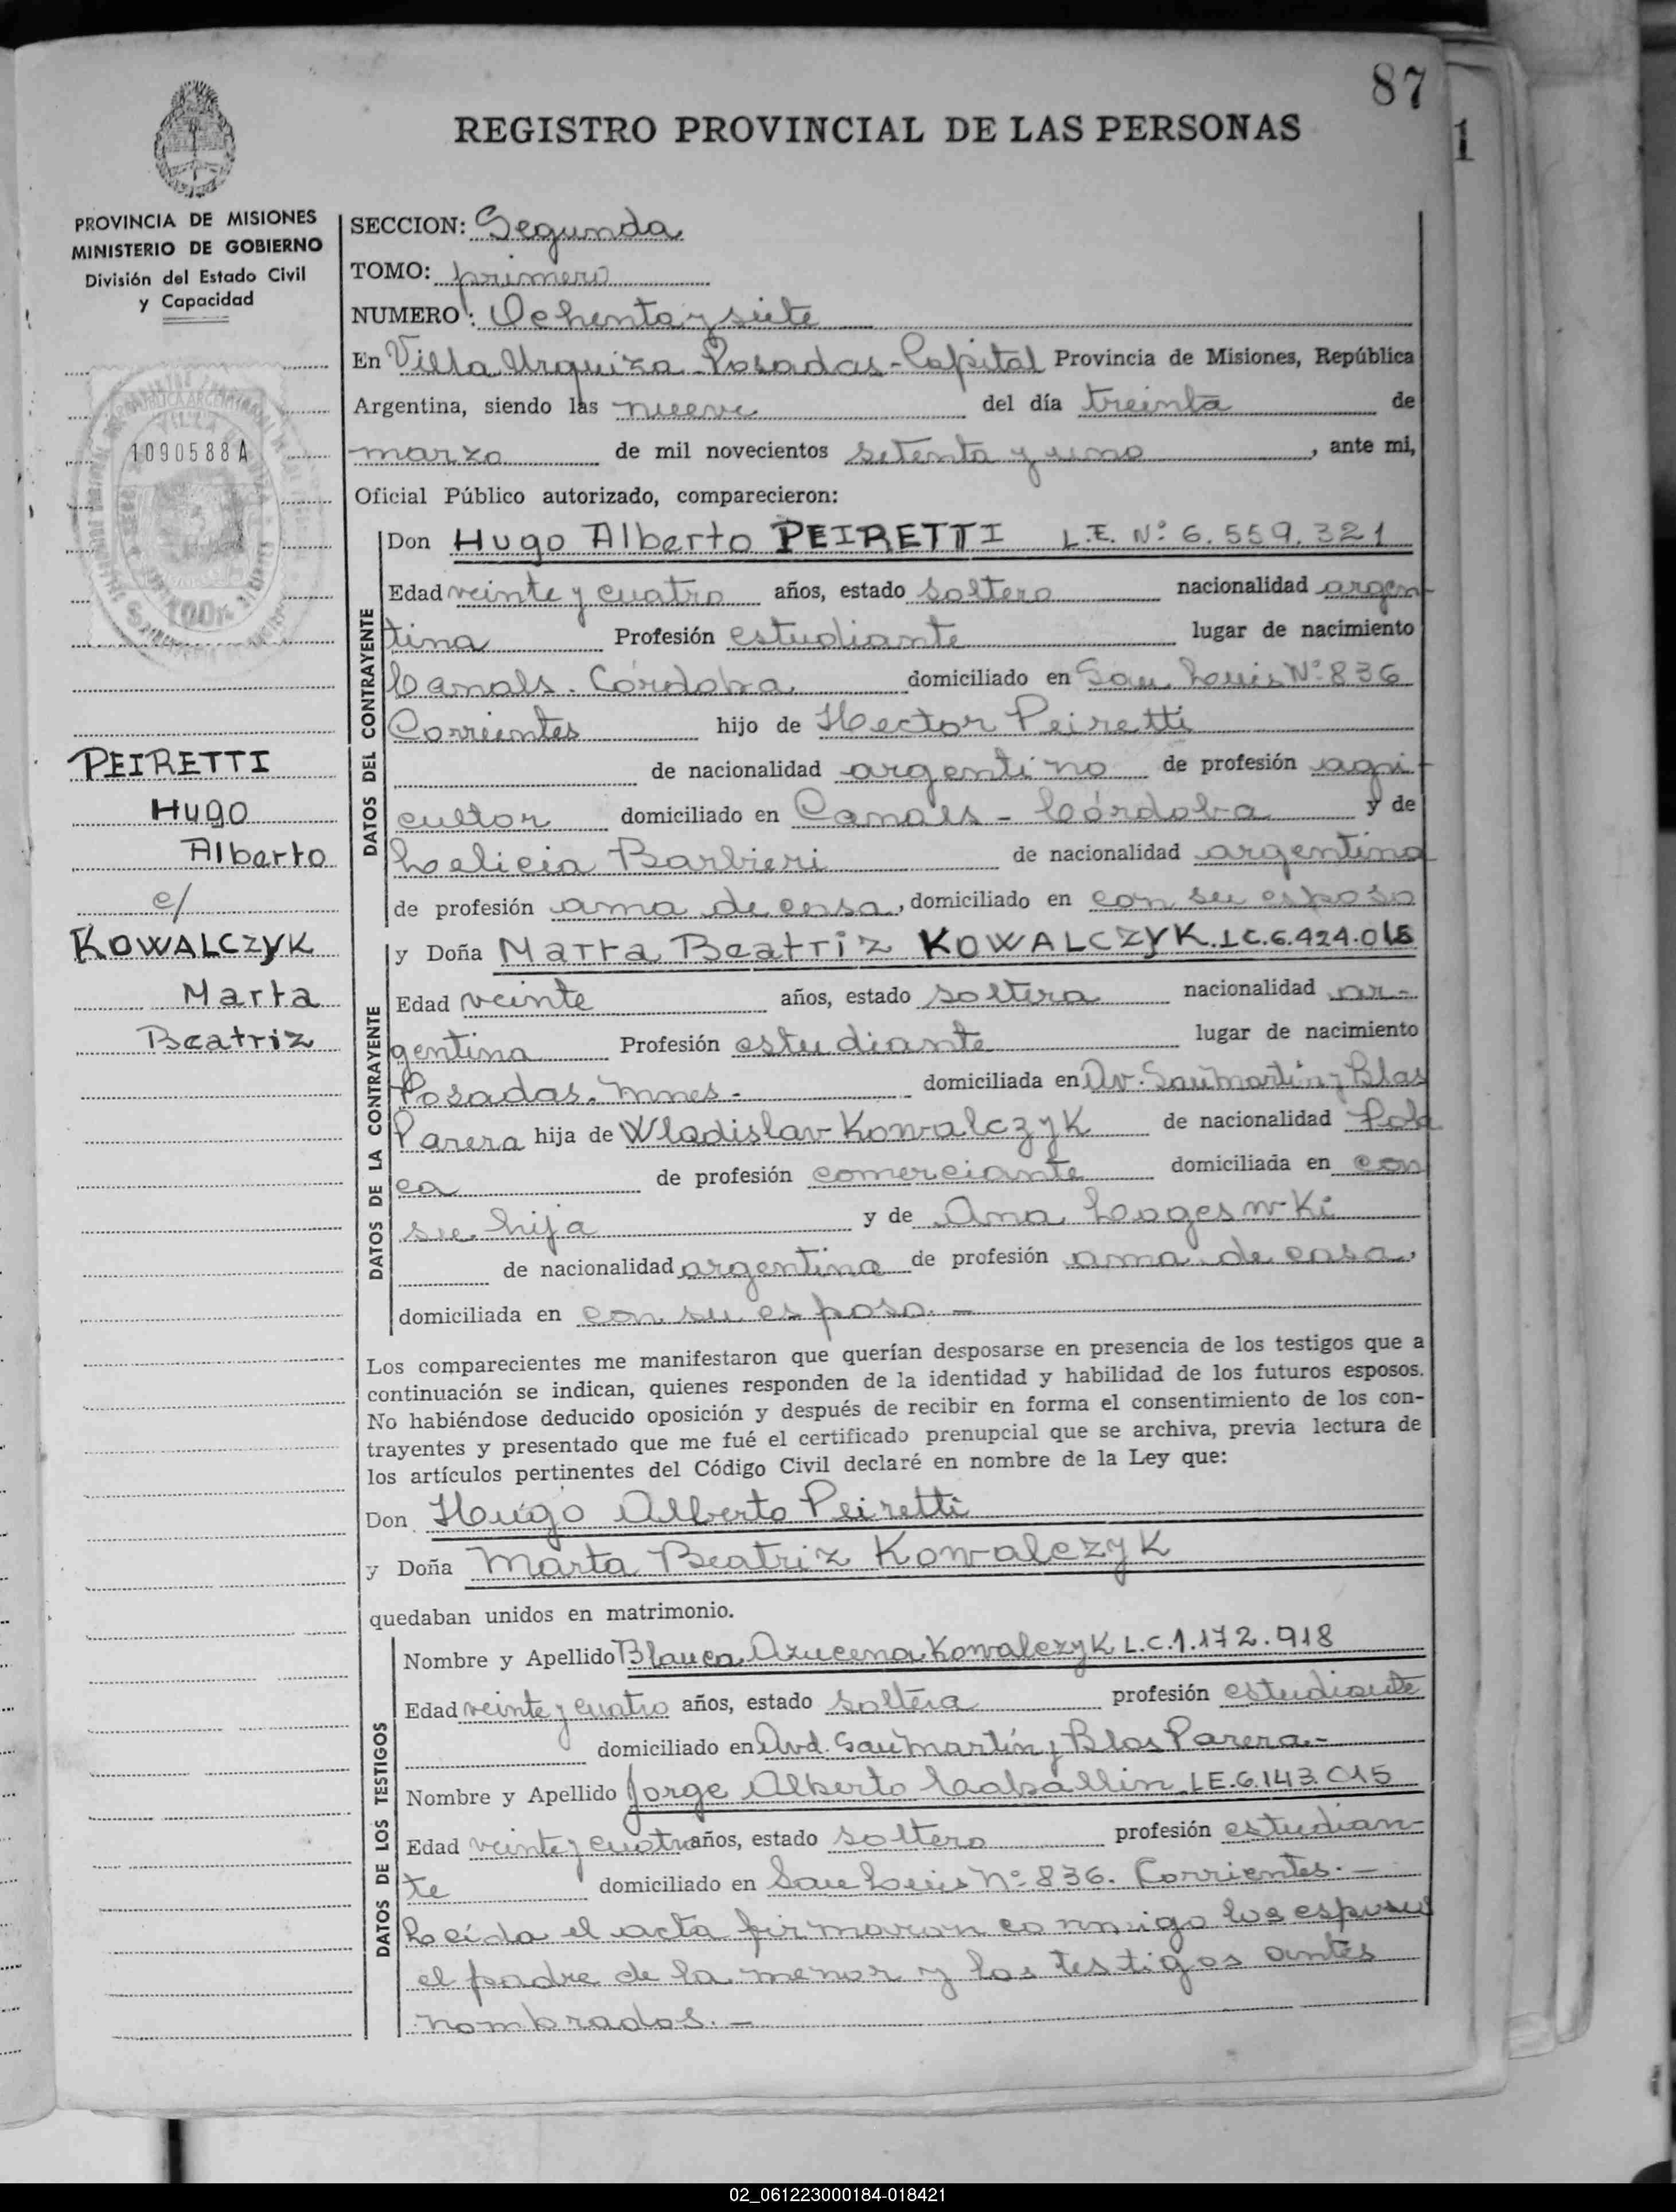 87
REGISTRO PROVINCIAL DE LAS PERSONAS
1
PROVINCIA DE MISIONES
MINISTERIO DE GOBIERNO
División del Estado Civil
y Capacidad
1090588A
PEIRETTI
Hugo
Alberto
c/
KOWALCZYK
Marta
Beatriz
SECCION: Segunda
TOMO: primero
NUMERO: Ochenta y siete
En Villa Urquiza - Posadas - Capital Provincia de Misiones, República
Argentina, siendo las nueve del día treinta de
marzo de mil novecientos setenta y uno, ante mi,
Oficial Público autorizado, comparecieron:
DATOS DEL CONTRAYENTE
Don Hugo Alberto PEIRETTI L.E. Nº 6.559.321
Edad veinte y cuatro años, estado soltero nacionalidad argen-
tina Profesión estudiante lugar de nacimiento
Canals. Córdoba. domiciliado en San Luis Nº 836
Corrientes hijo de Hector Peiretti
de nacionalidad argentino de profesión agri-
cultor domiciliado en Canals - Córdoba y de
Barbieri de nacionalidad argentina
de profesión ama de casa, domiciliado en con su esposo
DATOS DE LA CONTRAYENTE
y Doña Marta Beatriz KOWALCZYK. LC. 6.424.015
Edad veinte años, estado soltera nacionalidad ar-
gentina Profesión estudiante lugar de nacimiento
Posadas. Mnes. - domiciliada en Av. San Martín y Blas
Parera hija de Wladislav Kowalczyk de nacionalidad Pola
ca de profesión comerciante domiciliada en con
su hija y de Ana
de nacionalidad argentina de profesión ama de casa,
domiciliada en con su esposo. -
Los comparecientes me manifestaron que querían desposarse en presencia de los testigos que a
continuación se indican, quienes responden de la identidad y habilidad de los futuros esposos.
No habiéndose deducido oposición y después de recibir en forma el consentimiento de los con-
trayentes y presentado que me fué el certificado prenupcial que se archiva, previa lectura de
los artículos pertinentes del Código Civil declaré en nombre de la Ley que:
Don Hugo Alberto Peiretti
y Doña Marta Beatriz Kowalczyk
quedaban unidos en matrimonio.
DATOS DE LOS TESTIGOS
Nombre y Apellido Blanca Azucena Kowalczyk L.C. 1.172.918
Edad veinte y cuatro años, estado soltera profesión estudiante
domiciliado en Avd. San Martín y Blas Parera. -
Nombre y Apellido Jorge Alberto LE. 6.143.015
Edad veinte y cuatro años, estado soltero profesión estudian-
te domiciliado en San Luis Nº 836. Corrientes. -
Leída el acta firmaron conmigo los esposos
el padre de la menor y los testigos antes
nombrados. -
02_061223000184-018421